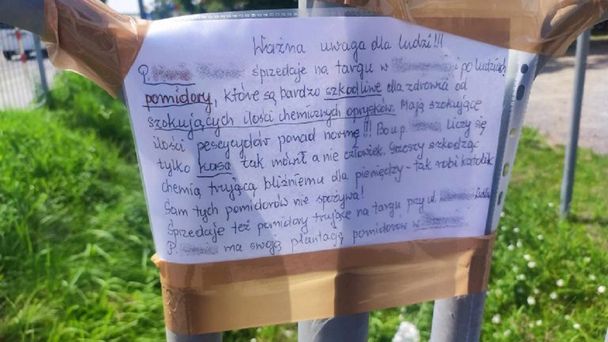 Ważna uwaga dla ludzi!!!
P. sprzedaje na targu w i po ludziach
pomidory, które są bardzo szkodliwe dla zdrowia od
szokujących ilości chemicznych oprysków. Mają szokujące
ilości pescycydów ponad normę!!! Bo u p. liczy się
tylko kasa tak mówił a nie człowiek. Grzeszy szkodząc
chemią trującą bliźniemu dla pieniędzy - tak robi katolik
Sam tych pomidorów nie spożywa!
Sprzedaje też pomidory trujące na targu przy ul.
P. ma swoją plantację pomidorów w